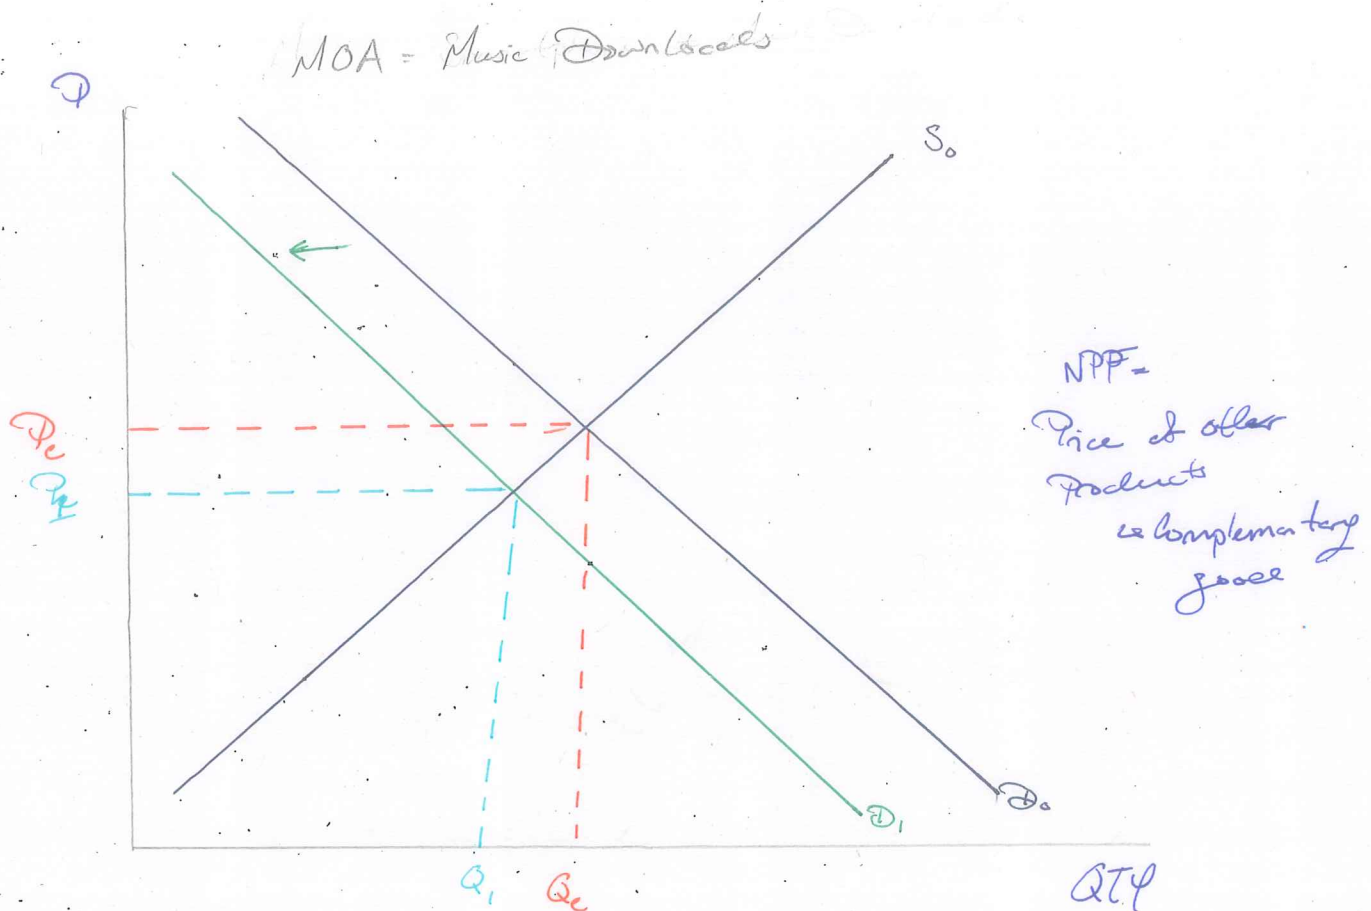 MOA = Music Downloads
P
S₀
NPF =
Price of other
Products
Complementary
good
Pe
P₁
D₀
D₁
Q₁
Qe
QTY